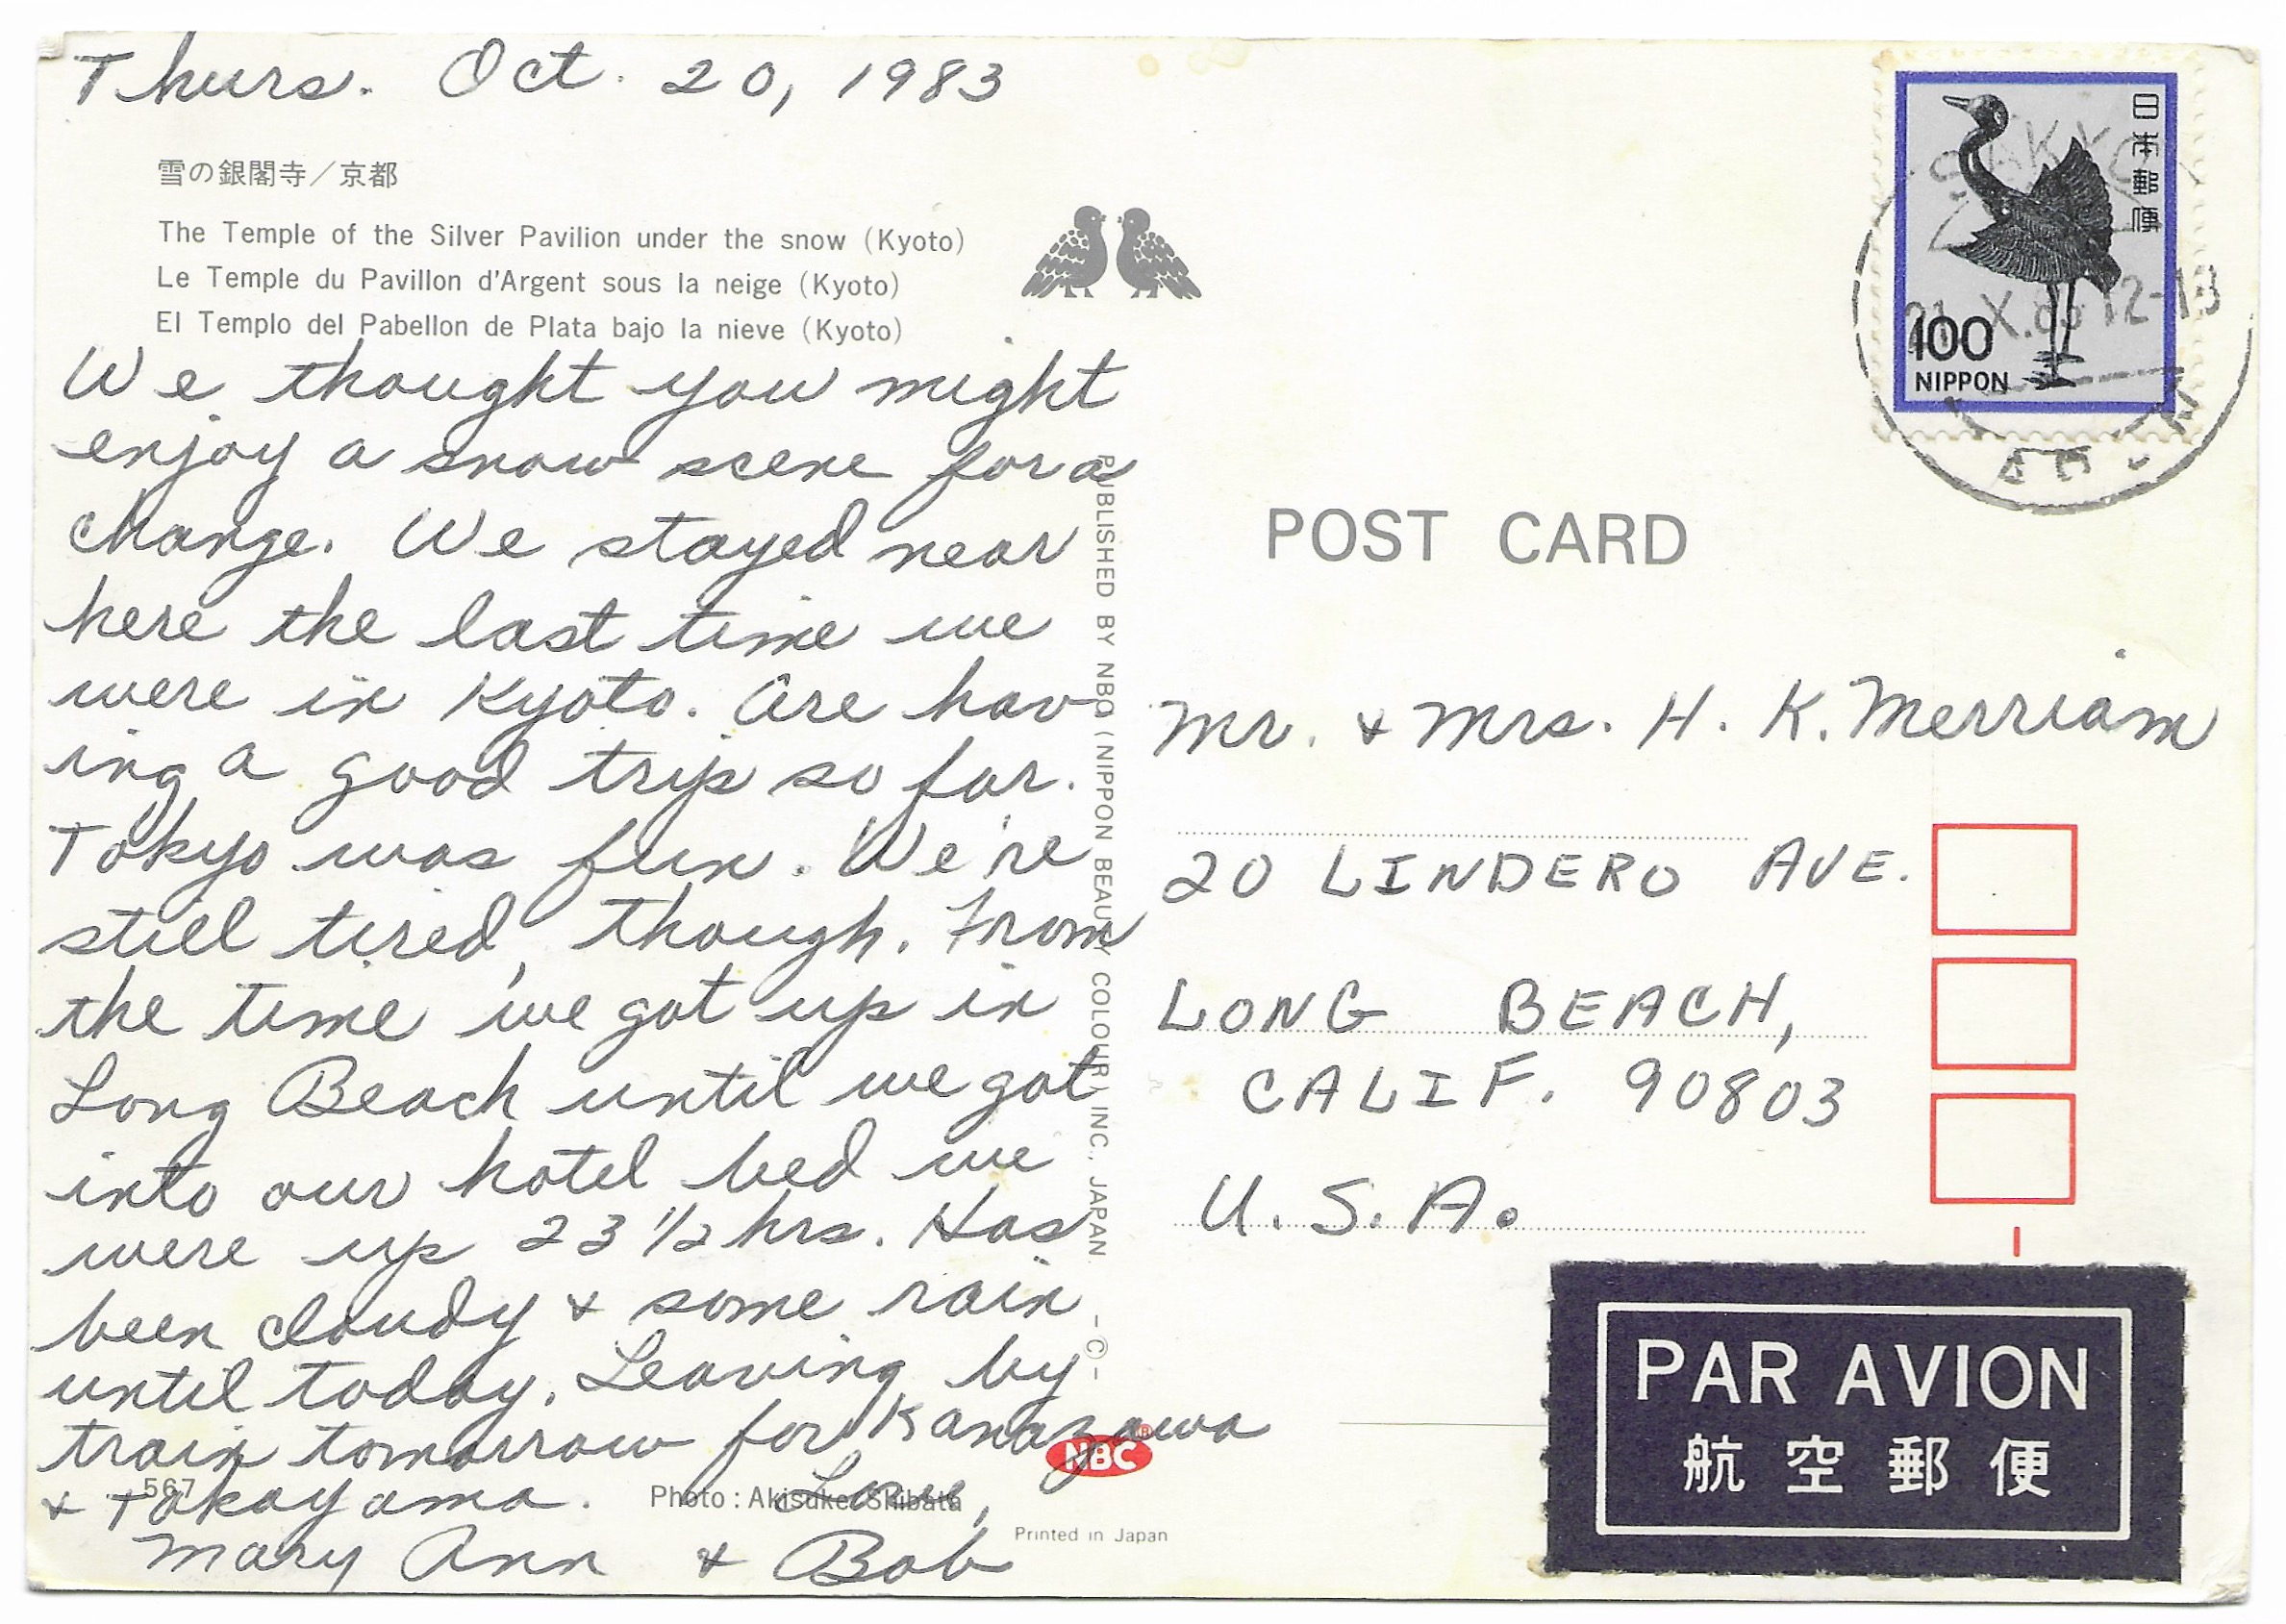 Thurs. Oct. 20, 1983
雪の銀閣寺／京都
The Temple of the Silver Pavilion under the snow (Kyoto)
Le Temple du Pavillon d'Argent sous la neige (Kyoto)
El Templo del Pabellon de Plata bajo la nieve (Kyoto)
We thought you might
enjoy a snow scene for a
change. We stayed near
here the last time we
were in Kyoto. Are hav-
ing a good trip so far.
Tokyo was fun. We're
still tired, though. From
the time we got up in
Long Beach until we got
into our hotel bed we
were up 23 1/2 hrs. Has
been cloudy & some rain
until today. Leaving by
train tomorrow for Kanazawa
& Takayama.
Love,
Mary Ann & Bob
567
Photo : Akisuke Shibata
Printed in Japan
NBC
PUBLISHED BY NBC (NIPPON BEAUTY COLOUR) INC., JAPAN. -©-
日本郵便
100
NIPPON
X.83 12-13
POST CARD
Mr. & Mrs. H. K. Merriam
20 LINDERO AVE.
LONG BEACH,
CALIF. 90803
U.S.A.
PAR AVION
航空郵便